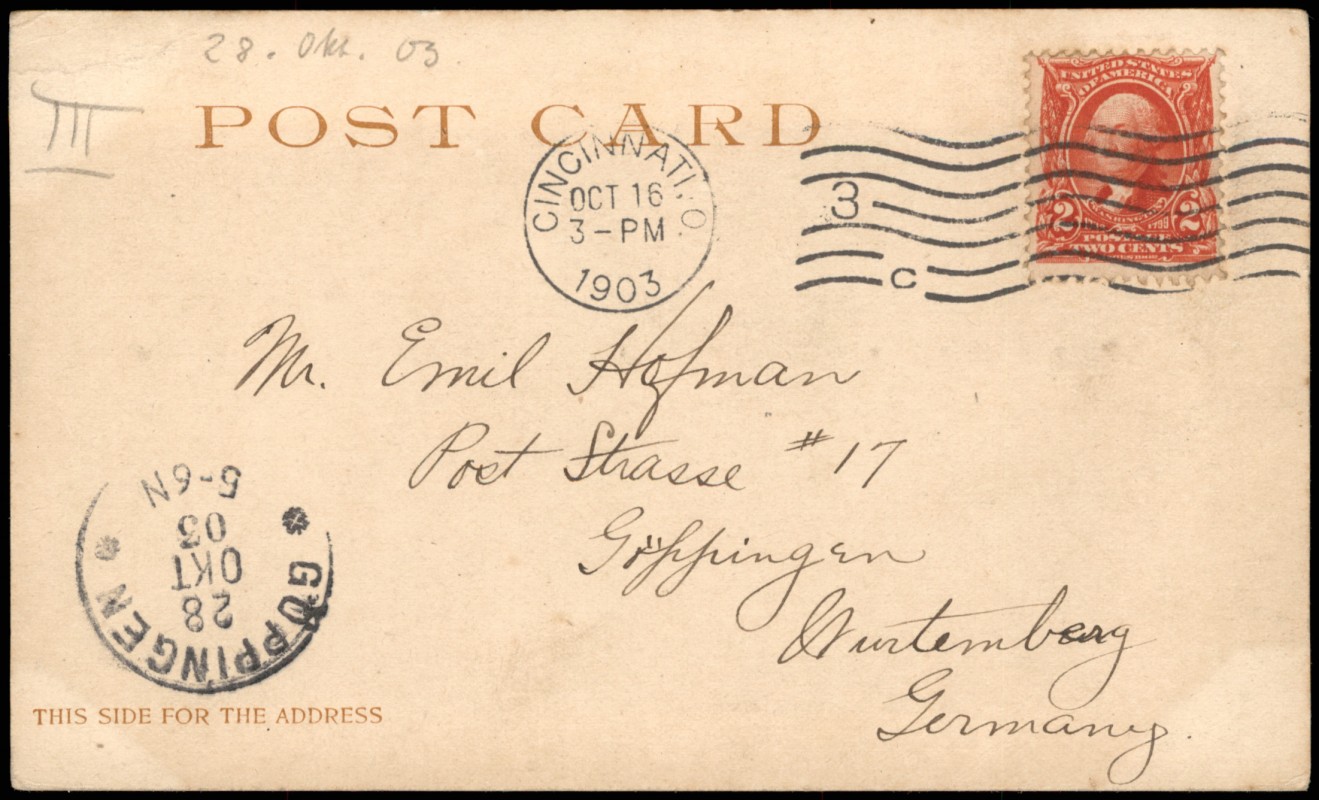 28. Okt. 03.
III
POST CARD
UNITED STATES
OF AMERICA
WASHINGTON
1799
2 2
POSTAGE
TWO CENTS
CINCINNATI, O.
OCT 16
3-PM
1903
3
C
Mr. Emil Hofman
Post Strasse #17
Göppingen
Wurtemberg
Germany.
GÖPPINGEN
28
OKT
03
5-6N
THIS SIDE FOR THE ADDRESS